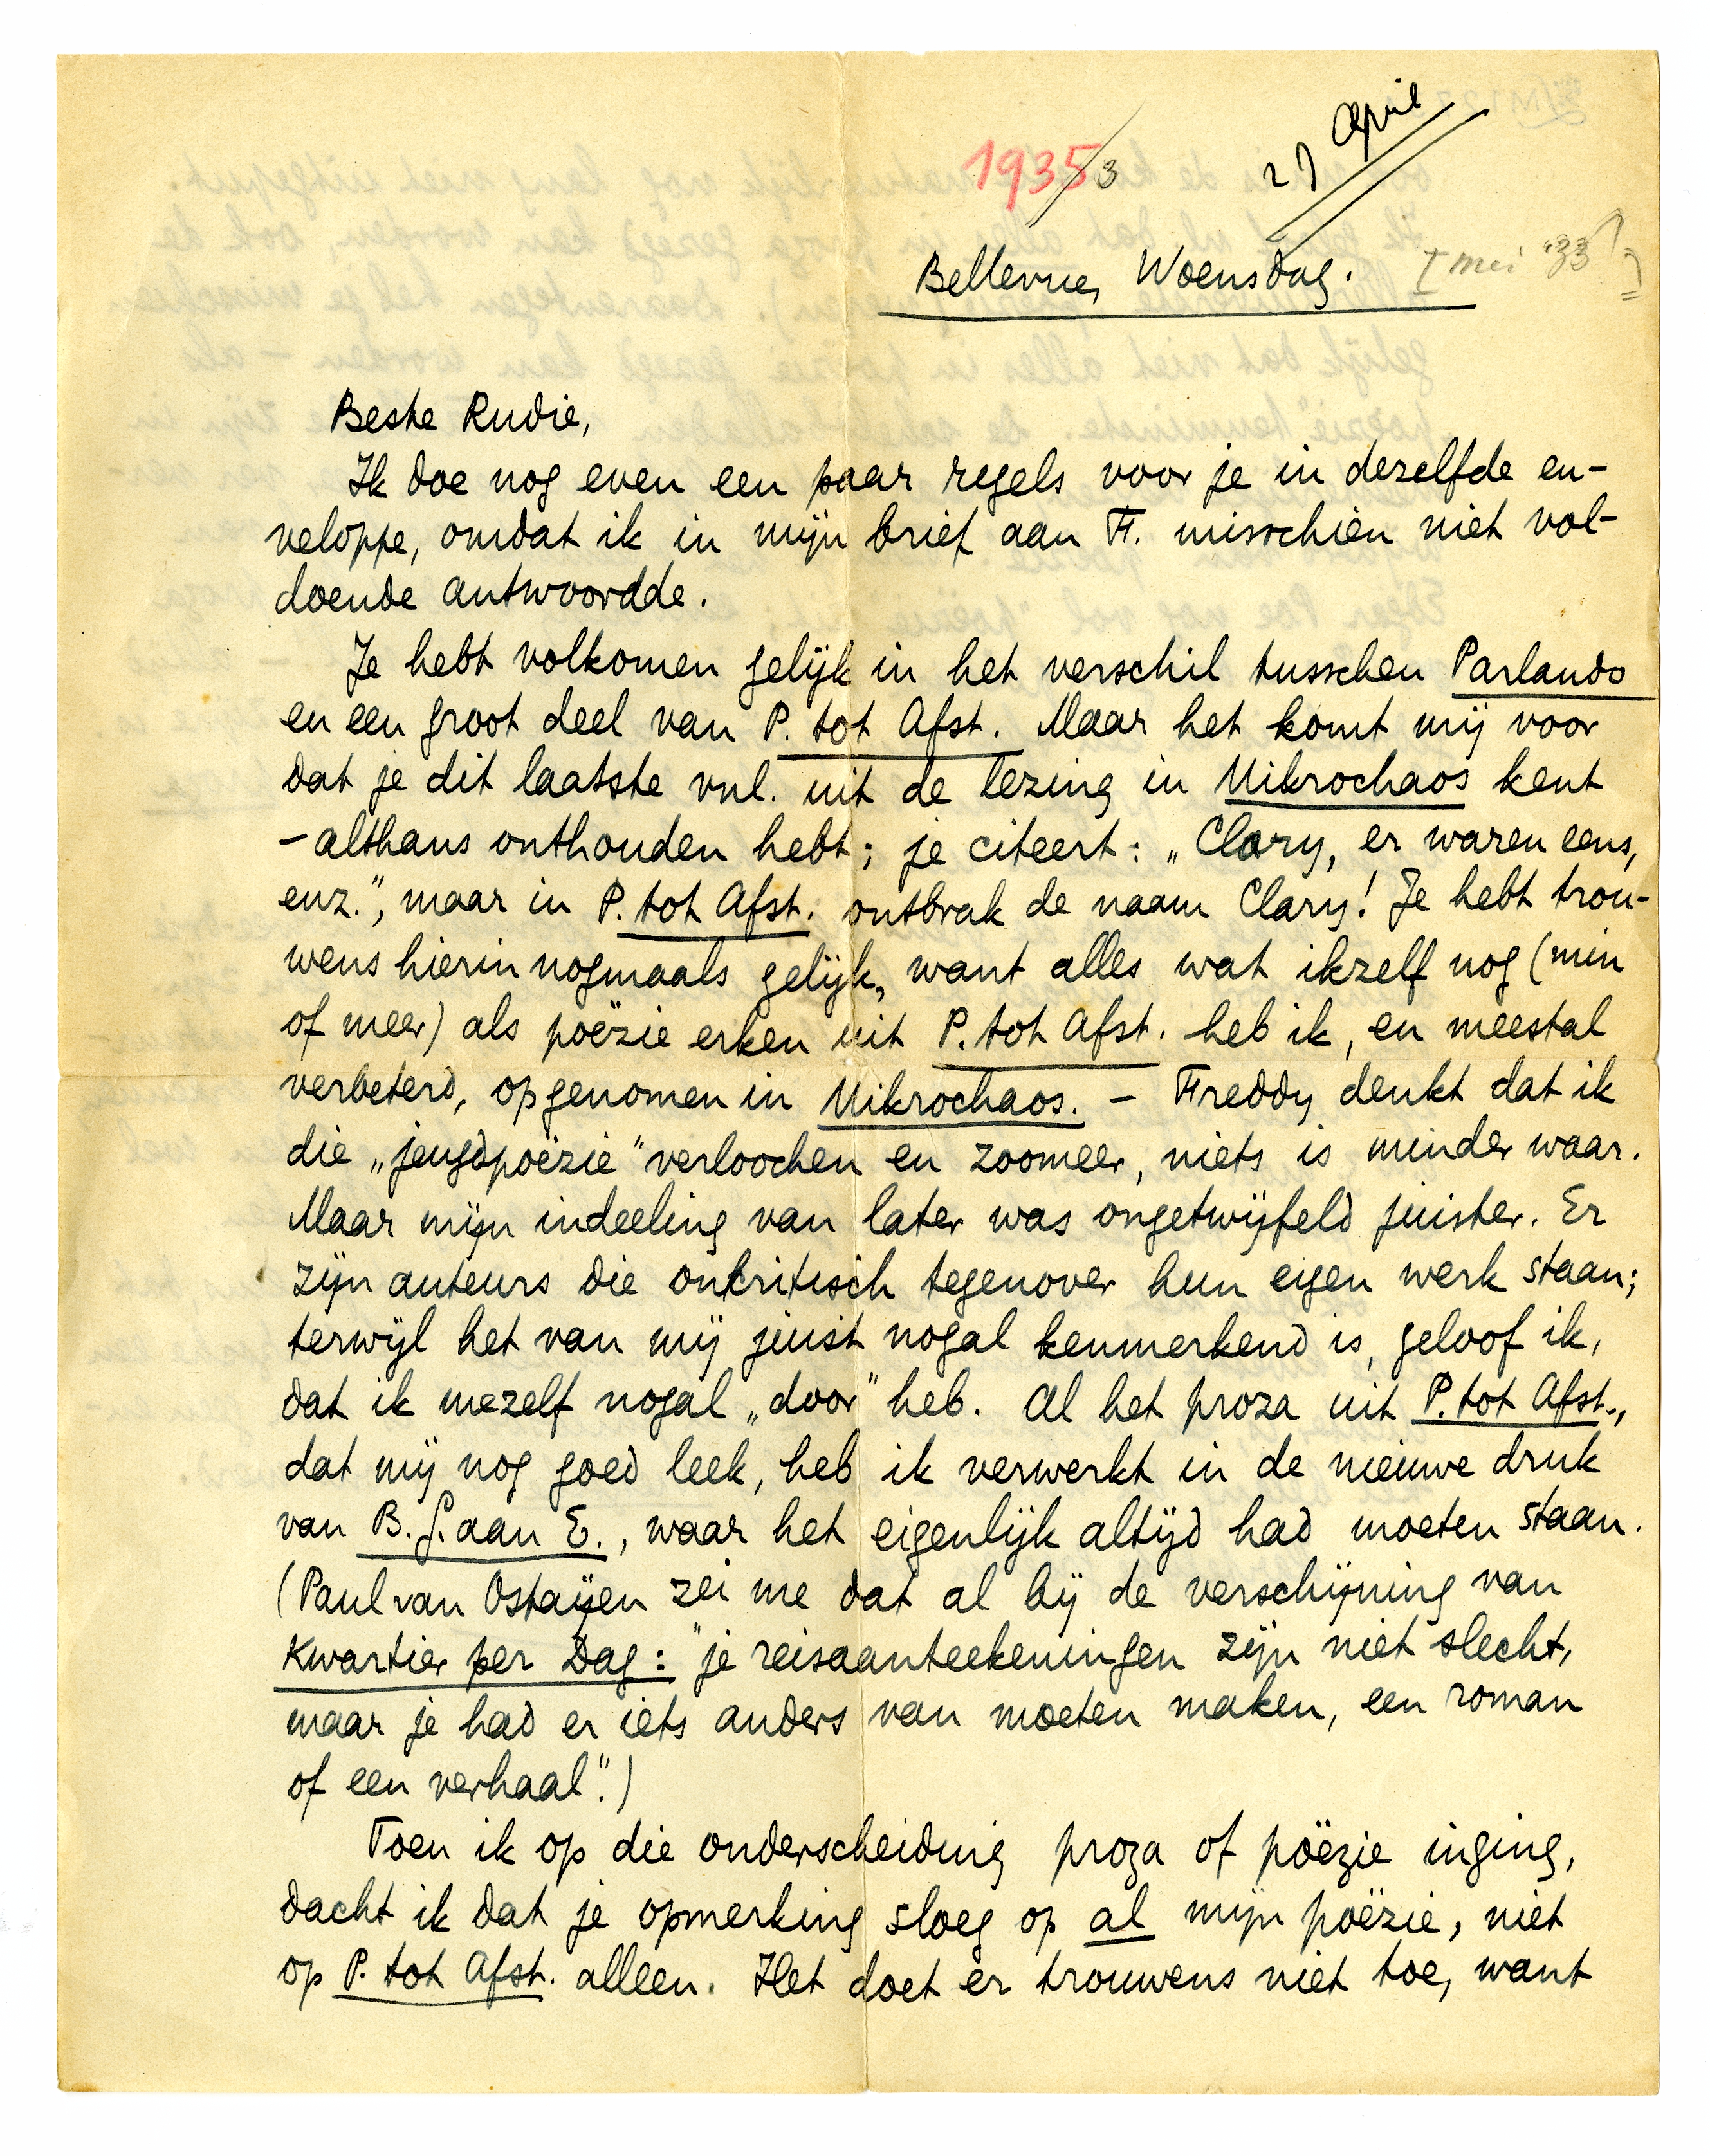 27 April
1935 3
Bellevue, Woensdag. [mei '33]
Beste Rudie,
Ik doe nog even een paar regels voor je in dezelfde en-
veloppe, omdat ik in mijn brief aan F. misschien niet vol-
doende antwoordde.
Je hebt volkomen gelijk in het verschil tusschen Parlando
en een groot deel van P. tot Afst. Maar het komt mij voor
dat je dit laatste vnl. uit de lezing in Mikrochaos kent
– althans onthouden hebt; je citeert: „Clary, er waren eens,
enz.", maar in P. tot Afst. ontbrak de naam Clary! Je hebt trou-
wens hierin nogmaals gelijk, want alles wat ikzelf nog (min
of meer) als poëzie erken uit P. tot Afst. heb ik, en meestal
verbeterd, opgenomen in Mikrochaos. – Freddy denkt dat ik
die „jeugdpoëzie" verloochen en zoomeer, niets is minder waar.
Maar mijn indeeling van later was ongetwijfeld juister. Er
zijn auteurs die onkritisch tegenover hun eigen werk staan;
terwijl het van mij juist nogal kenmerkend is, geloof ik,
dat ik mezelf nogal „door" heb. Al het proza uit P. tot Afst.,
dat mij nog goed leek, heb ik verwerkt in de nieuwe druk
van B. G. aan E., waar het eigenlijk altijd had moeten staan.
(Paul van Ostaijen zei me dat al bij de verschijning van
Kwartier per Dag: "je reisaanteekeningen zijn niet slecht,
maar je had er iets anders van moeten maken, een roman
of een verhaal".)
Toen ik op die onderscheiding proza of poëzie inging,
dacht ik dat je opmerking sloeg op al mijn poëzie, niet
op P. tot Afst. alleen. Het doet er trouwens niet toe, want